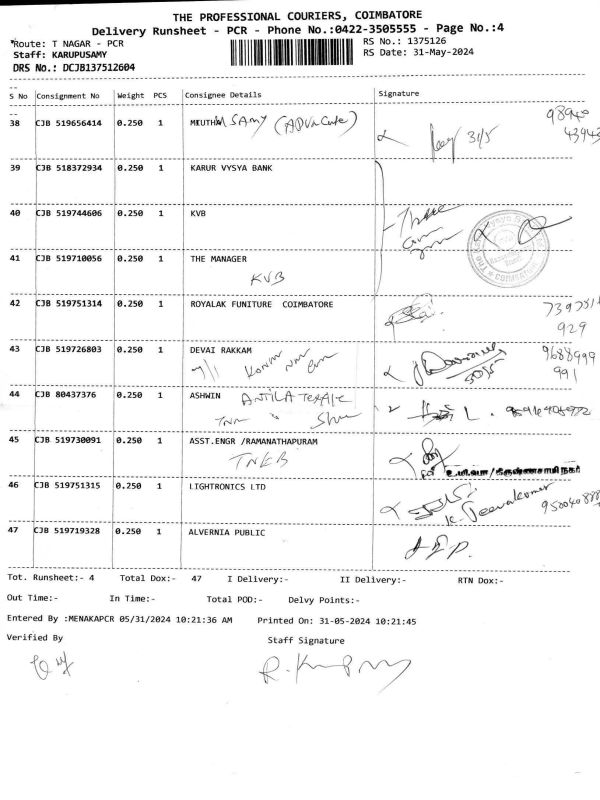 THE PROFESSIONAL COURIERS, COIMBATORE
Delivery Runsheet - PCR - Phone No.:0422-3505555 - Page No.:4
Route: T NAGAR - PCR
RS No.: 1375126
Staff: KARUPUSAMY
RS Date: 31-May-2024
DRS No.: DCJB137512604
S No Consignment No Weight PCS Consignee Details Signature
38 CJB 519656414 0.250 1 MEUTHU SAMY (ADVACate) 31/5
39 CJB 518372934 0.250 1 KARUR VYSYA BANK
40 CJB 519744606 0.250 1 KVB
41 CJB 519710056 0.250 1 THE MANAGER
KVB
42 CJB 519751314 0.250 1 ROYALAK FUNITURE COIMBATORE
929
43 CJB 519726803 0.250 1 DEVAI RAKKAM 9688999
991
44 CJB 80437376 0.250 1 ASHWIN
45 CJB 519730091 0.250 1 ASST.ENGR /RAMANATHAPURAM
TNEB
46 CJB 519751315 0.250 1 LIGHTRONICS LTD
K. Jeevakumar
47 CJB 519719328 0.250 1 ALVERNIA PUBLIC
Tot. Runsheet:- 4 Total Dox:- 47 I Delivery:- II Delivery:- RTN Dox:-
Out Time:- In Time:- Total POD:- Delvy Points:-
Entered By :MENAKAPCR 05/31/2024 10:21:36 AM Printed On: 31-05-2024 10:21:45
Verified By Staff Signature